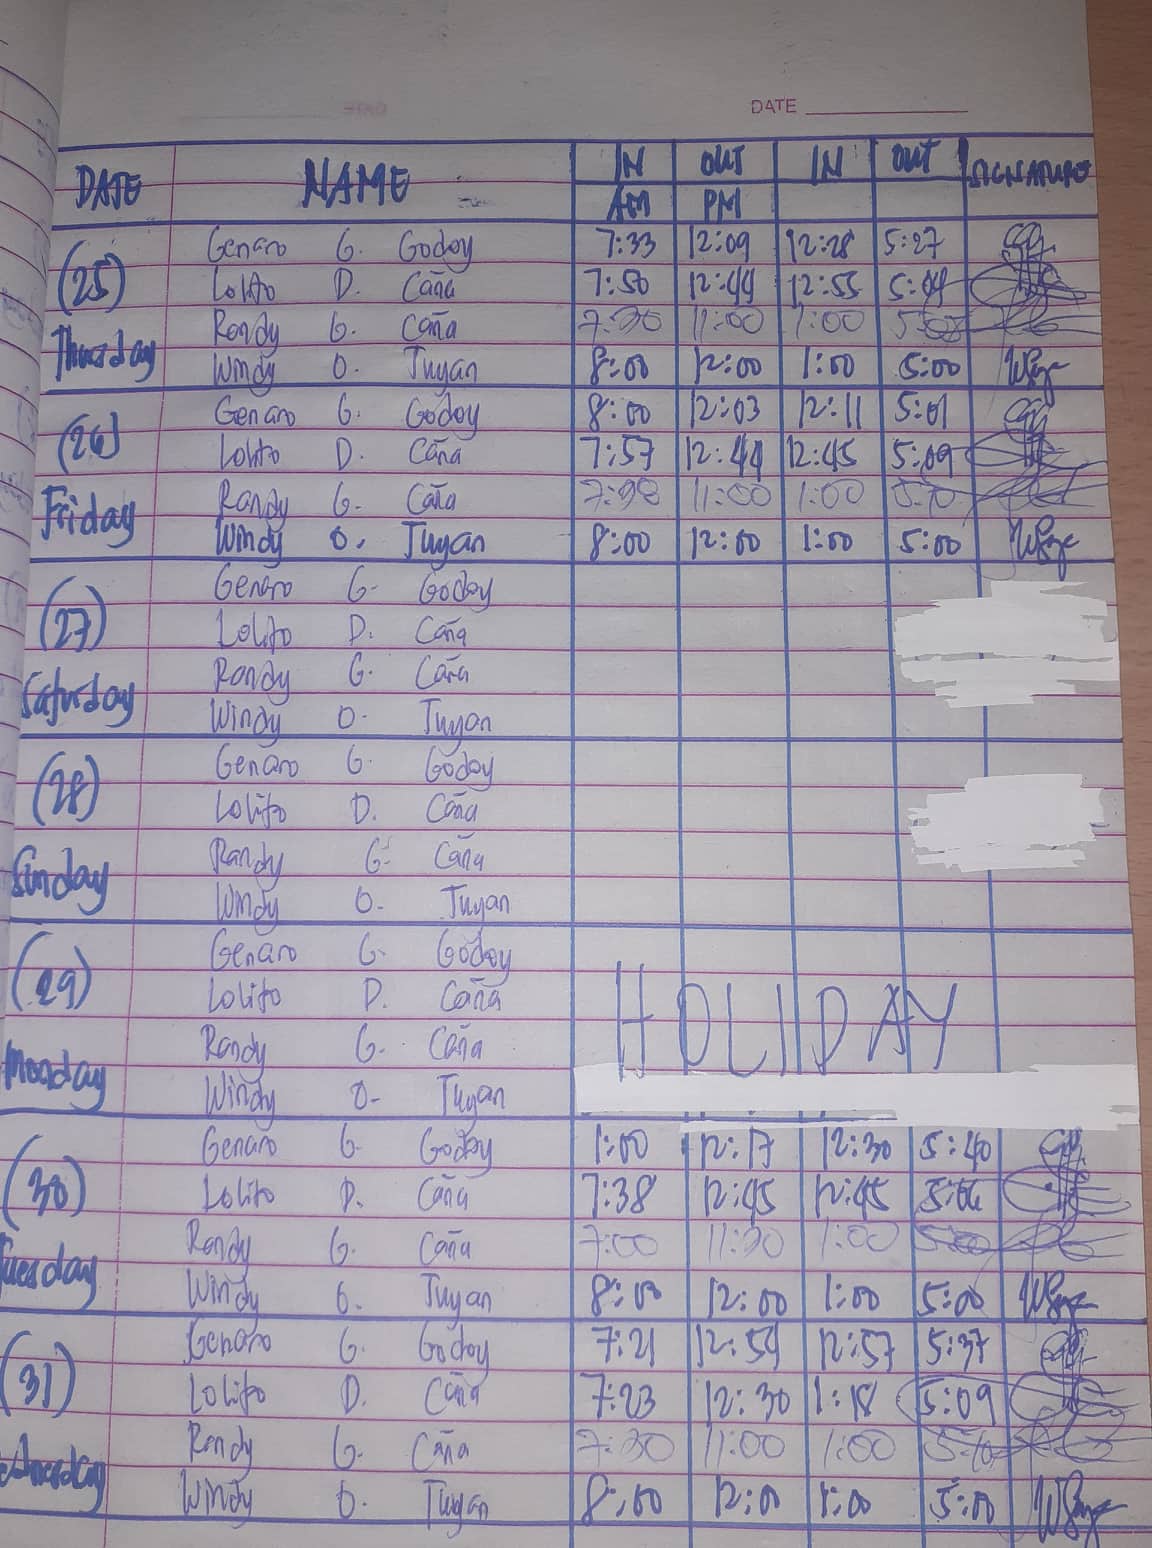 DATE
DATE NAME IN OUT IN OUT SIGNATURE
AM PM
Genaro G. Godoy 7:33 12:09 12:28 5:27
(25) Lolito D. Caña 7:50 12:44 12:55 5:04
Randy G. Caña 11:00 1:00
Thursday Windy O. Tuyan 8:00 12:00 1:00 5:00
Genaro G. Godoy 8:00 12:03 12:11 5:01
(26) Lolito D. Caña 7:57 12:44 12:45 5:09
Randy G. Caña 11:00 1:00
Friday Windy O. Tuyan 8:00 12:00 1:00 5:00
Genaro G. Godoy
(27) Lolito D. Caña
Randy G. Caña
Saturday Windy O. Tuyan
Genaro G. Godoy
(28) Lolito D. Caña
Randy G. Caña
Sunday Windy O. Tuyan
Genaro G. Godoy
(29) Lolito D. Caña HOLIDAY
Randy G. Caña
Monday Windy O. Tuyan
Genaro G. Godoy 1:00 12:17 12:30 5:40
(30) Lolito D. Caña 7:38 12:45 12:45 5:06
Randy G. Caña 7:00 11:30 1:00
Tuesday Windy O. Tuyan 8:00 12:00 1:00 5:00
Genaro G. Godoy 7:21 12:59 12:57 5:37
(31) Lolito D. Caña 7:23 12:30 1:18 5:09
Randy G. Caña 7:30 11:00 1:00
Windy O. Tuyan 8:00 12:00 1:00 5:00